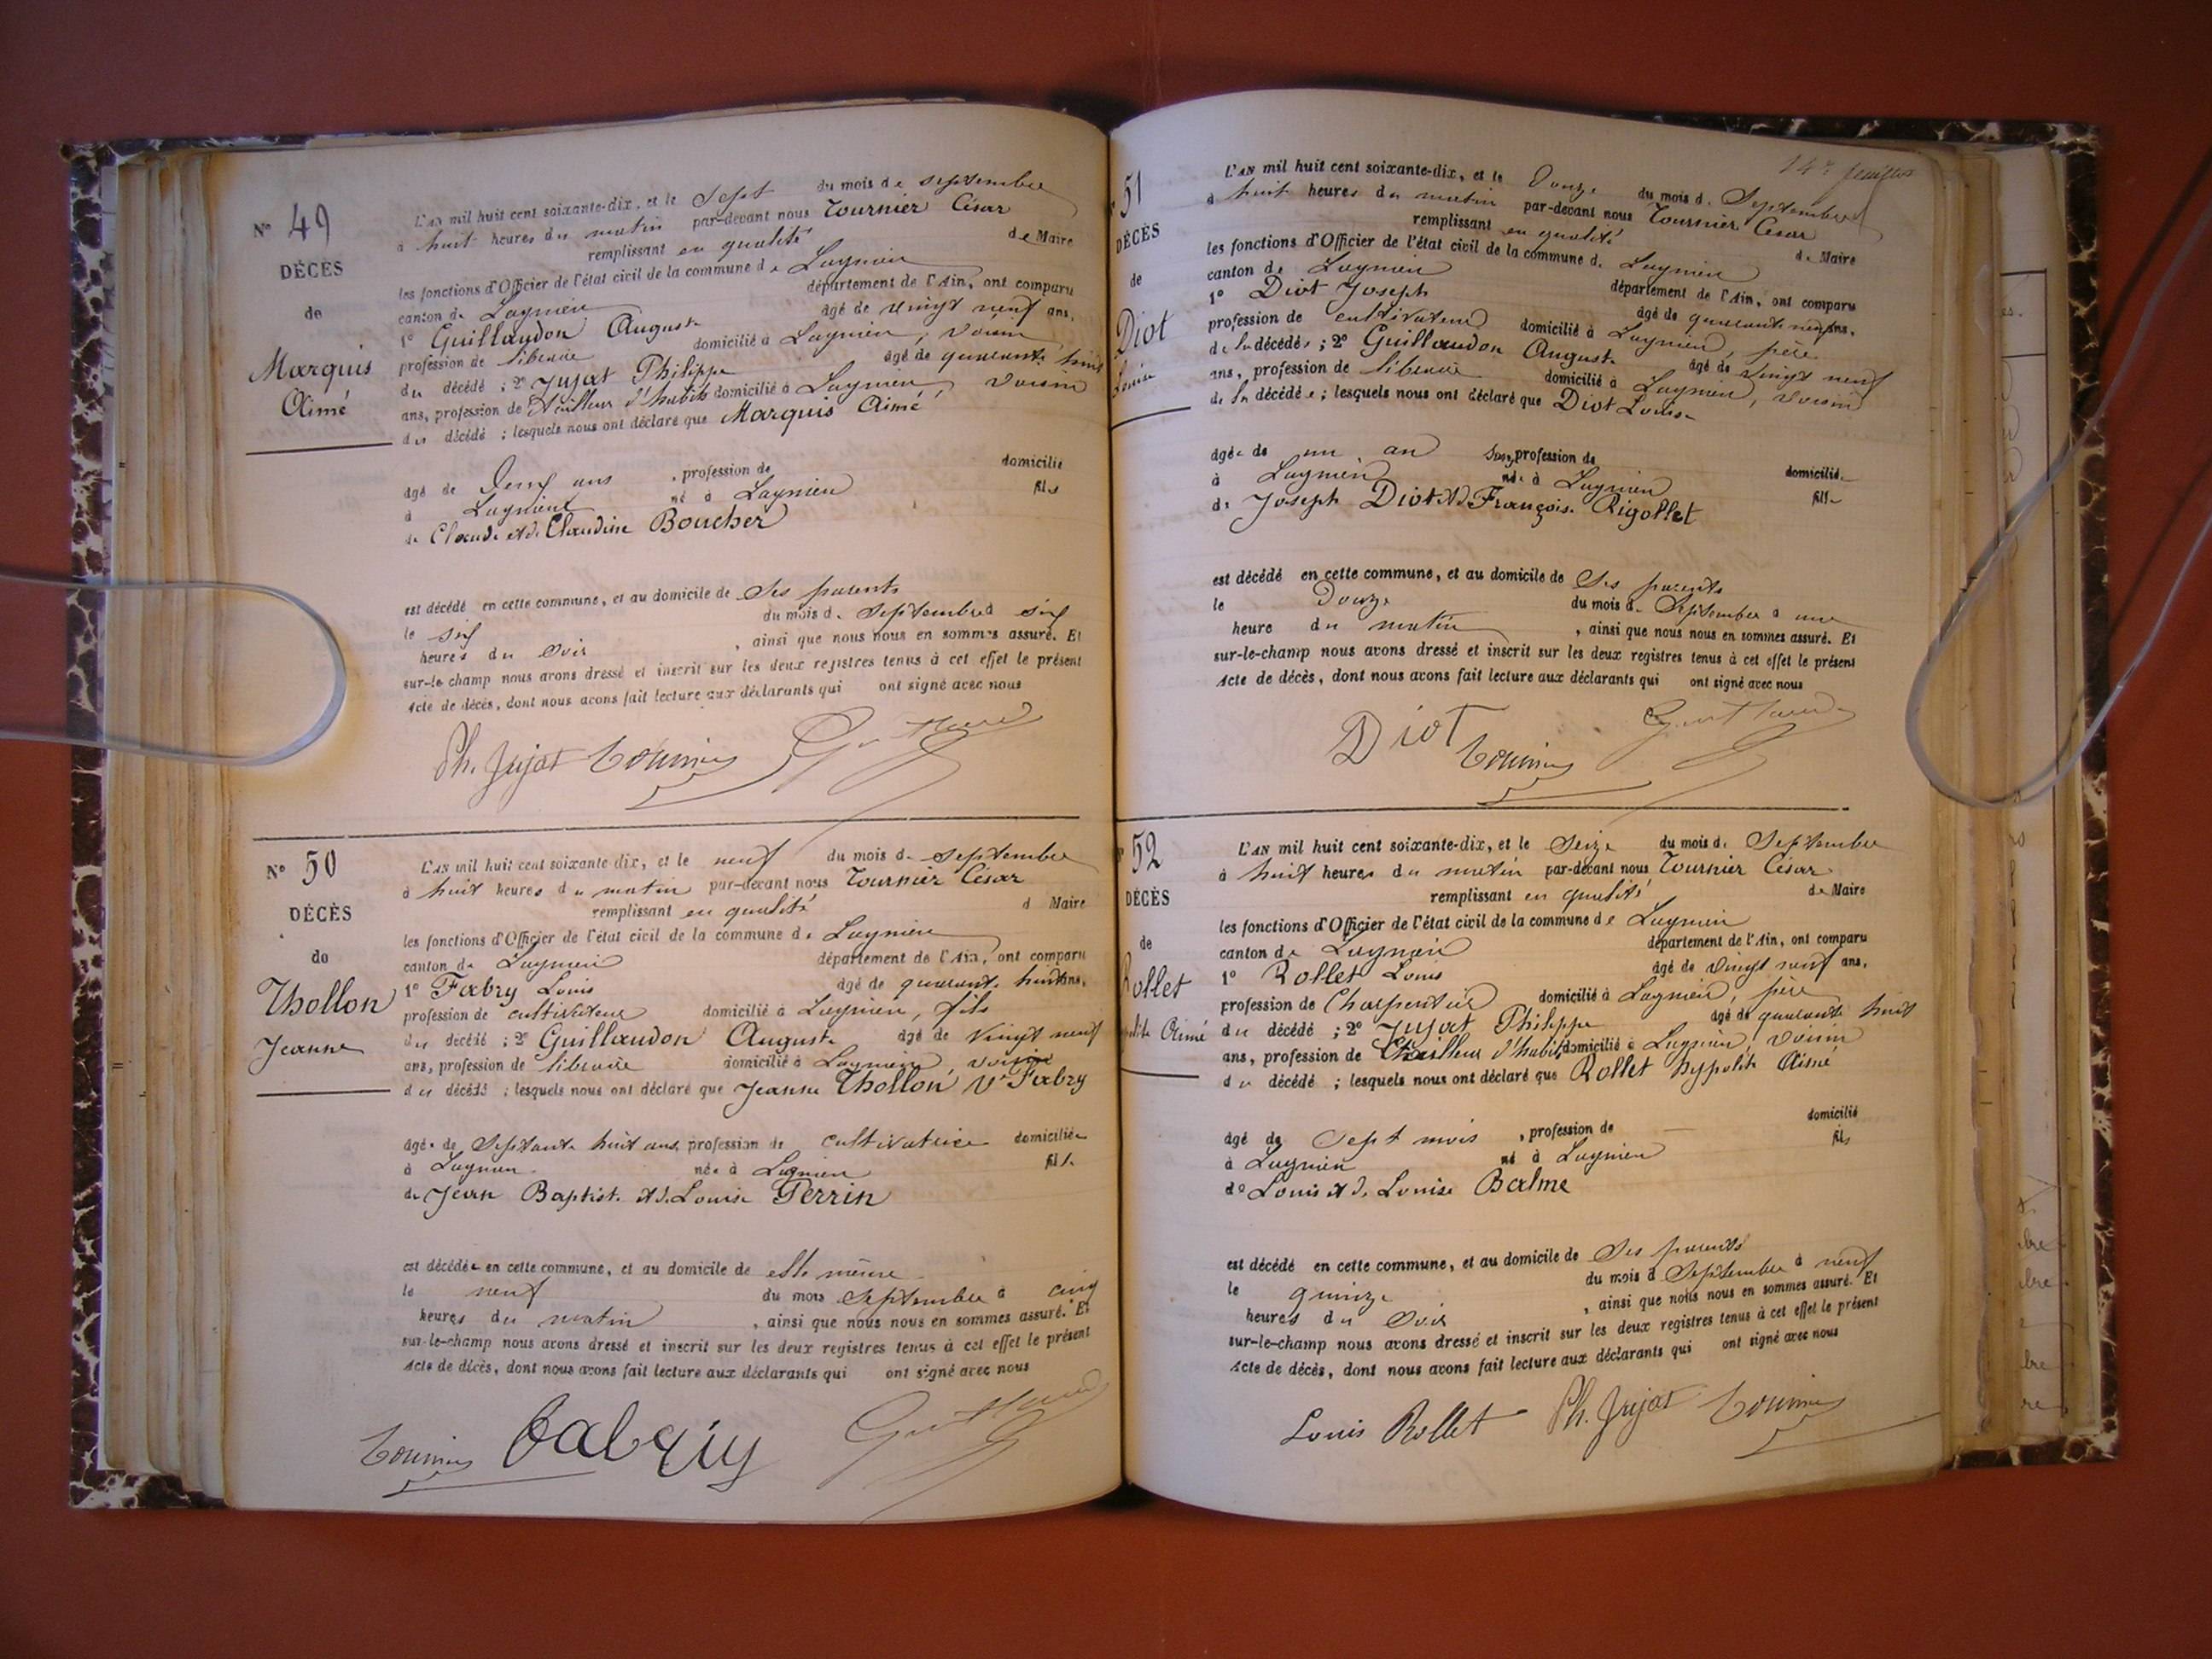 N° 49
DÉCÈS
de
Marquis
Aimé
L'AN mil huit cent soixante-dix, et le Sept du mois de septembre
à huit heures du matin par-devant nous Tournier César
remplissant en qualité de Maire
les fonctions d'Officier de l'état civil de la commune de Lagnieu
canton de Lagnieu département de l'Ain, ont comparu
1° Guillaudon August. âgé de vingt neuf ans,
profession de libraire domicilié à Lagnieu, voisin
du décédé ; 2° Jujat Philippe âgé de quarante huit
ans, profession de tailleur d'habits domicilié à Lagnieu, voisin
du décédé ; lesquels nous ont déclaré que Marquis Aimé
âgé de deux ans, profession de domicilié
à Lagnieu né à Lagnieu fils
de Claude et de Claudine Boucher
est décédé en cette commune, et au domicile de Ses parents
le six du mois de Septembre à six
heures du Soir, ainsi que nous nous en sommes assuré. Et
sur-le champ nous avons dressé et inscrit sur les deux registres tenus à cet effet le présent
Acte de décès, dont nous avons fait lecture aux déclarants qui ont signé avec nous
Ph. Jujat Tournier
N° 50
DÉCÈS
de
Thollon
Jeanne
L'AN mil huit cent soixante dix, et le neuf du mois de Septembre
à huit heures du matin par-devant nous Tournier César
remplissant en qualité d Maire
les fonctions d'Officier de l'état civil de la commune de Lagnieu
canton de Lagnieu département de l'Ain, ont comparu
1° Fabry Louis âgé de quarante huit ans,
profession de cultivateur domicilié à Lagnieu, fils
du décédé ; 2° Guillaudon August. âgé de vingt neuf
ans, profession de libraire domicilié à Lagnieu, voisin
du décédé ; lesquels nous ont déclaré que Jeanne Thollon Ve Fabry
âgée de Septante huit ans, profession de cultivatrice domiciliée
à Lagnieu née à Lagnieu fille
de Jean Baptiste et de Louise Perrin
est décédée en cette commune, et au domicile de elle même
le neuf du mois Septembre à cinq
heures du matin, ainsi que nous nous en sommes assuré. Et
sur-le-champ nous avons dressé et inscrit sur les deux registres tenus à cet effet le présent
Acte de décès, dont nous avons fait lecture aux déclarants qui ont signé avec nous
Tournier Fabry
14e feuillet
51
DÉCÈS
de
Diot
Louise
L'AN mil huit cent soixante-dix, et le Douze du mois de Septembre
à huit heures du matin par-devant nous Tournier César
remplissant en qualité de Maire
les fonctions d'Officier de l'état civil de la commune de Lagnieu
canton de Lagnieu département de l'Ain, ont comparu
1° Diot Joseph âgé de quarante neuf ans,
profession de cultivateur domicilié à Lagnieu, père
de la décédée ; 2° Guillaudon August. âgé de vingt neuf
ans, profession de libraire domicilié à Lagnieu, voisin
de la décédée ; lesquels nous ont déclaré que Diot Louise
âgée de un an sans profession de domiciliée
à Lagnieu née à Lagnieu fille
de Joseph Diot et de Françoise Rigollet
est décédé en cette commune, et au domicile de Ses parents
le Douze du mois de Septembre à une
heure du matin, ainsi que nous nous en sommes assuré. Et
sur-le-champ nous avons dressé et inscrit sur les deux registres tenus à cet effet le présent
Acte de décès, dont nous avons fait lecture aux déclarants qui ont signé avec nous
Diot Tournier
52
DÉCÈS
de
Rollet
Aimé
L'AN mil huit cent soixante-dix, et le Seize du mois de Septembre
à huit heures du matin par-devant nous Tournier César
remplissant en qualité de Maire
les fonctions d'Officier de l'état civil de la commune de Lagnieu
canton de Lagnieu département de l'Ain, ont comparu
1° Rollet Louis âgé de vingt neuf ans,
profession de Charpentier domicilié à Lagnieu, père
du décédé ; 2° Jujat Philippe âgé de quarante huit
ans, profession de tailleur d'habits domicilié à Lagnieu, voisin
du décédé ; lesquels nous ont déclaré que Rollet hyppolite Aimé
âgé de Sept mois, profession de — domicilié
à Lagnieu né à Lagnieu fils
de Louis et de Louise Balme
est décédé en cette commune, et au domicile de Ses parents
le quinze du mois d Septembre à neuf
heures du Soir, ainsi que nous nous en sommes assuré. Et
sur-le-champ nous avons dressé et inscrit sur les deux registres tenus à cet effet le présent
Acte de décès, dont nous avons fait lecture aux déclarants qui ont signé avec nous
Louis Rollet Ph. Jujat Tournier